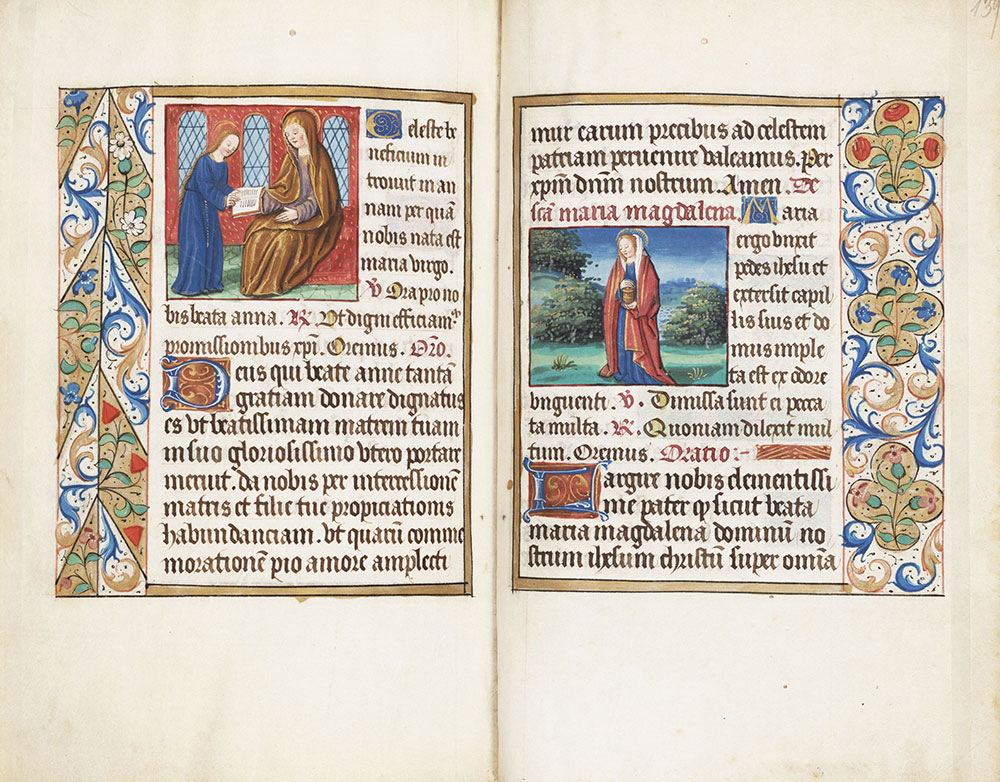 Celeste be
neficium in
troiuit in an
nam per quā
nobis nata est
maria virgo.
V Ora pro no
bis beata anna. R Vt digni efficiam
promissionibus xpī. Oremus. Orō.
Deus qui beate anne tantā
gratiam donare dignatus
es vt beatissimam matrem tuam
in suo gloriosissimo vtero portare
meruit. da nobis per intercessionē
matris et filie tue propiciationis
habundanciam. vt quarū comme
morationē pio amore amplecti
139
mur earum precibus ad celestem
patriam peruenire valeamus. Per
xpm̄ dnm̄ nostrum. Amen. De
scā maria magdalena. Maria
ergo vnxit
pedes ihesu et
extersit capil
lis suis et do
mus imple
ta est ex odore
vnguenti. V. Dimissa sunt ei pecca
ta multa. R. Quoniam dilexit mul
tum. Oremus. Oratio:-
Largire nobis clementissi
me pater q sicut beata
maria magdalena dominū no
strum ihesum christū super omīa